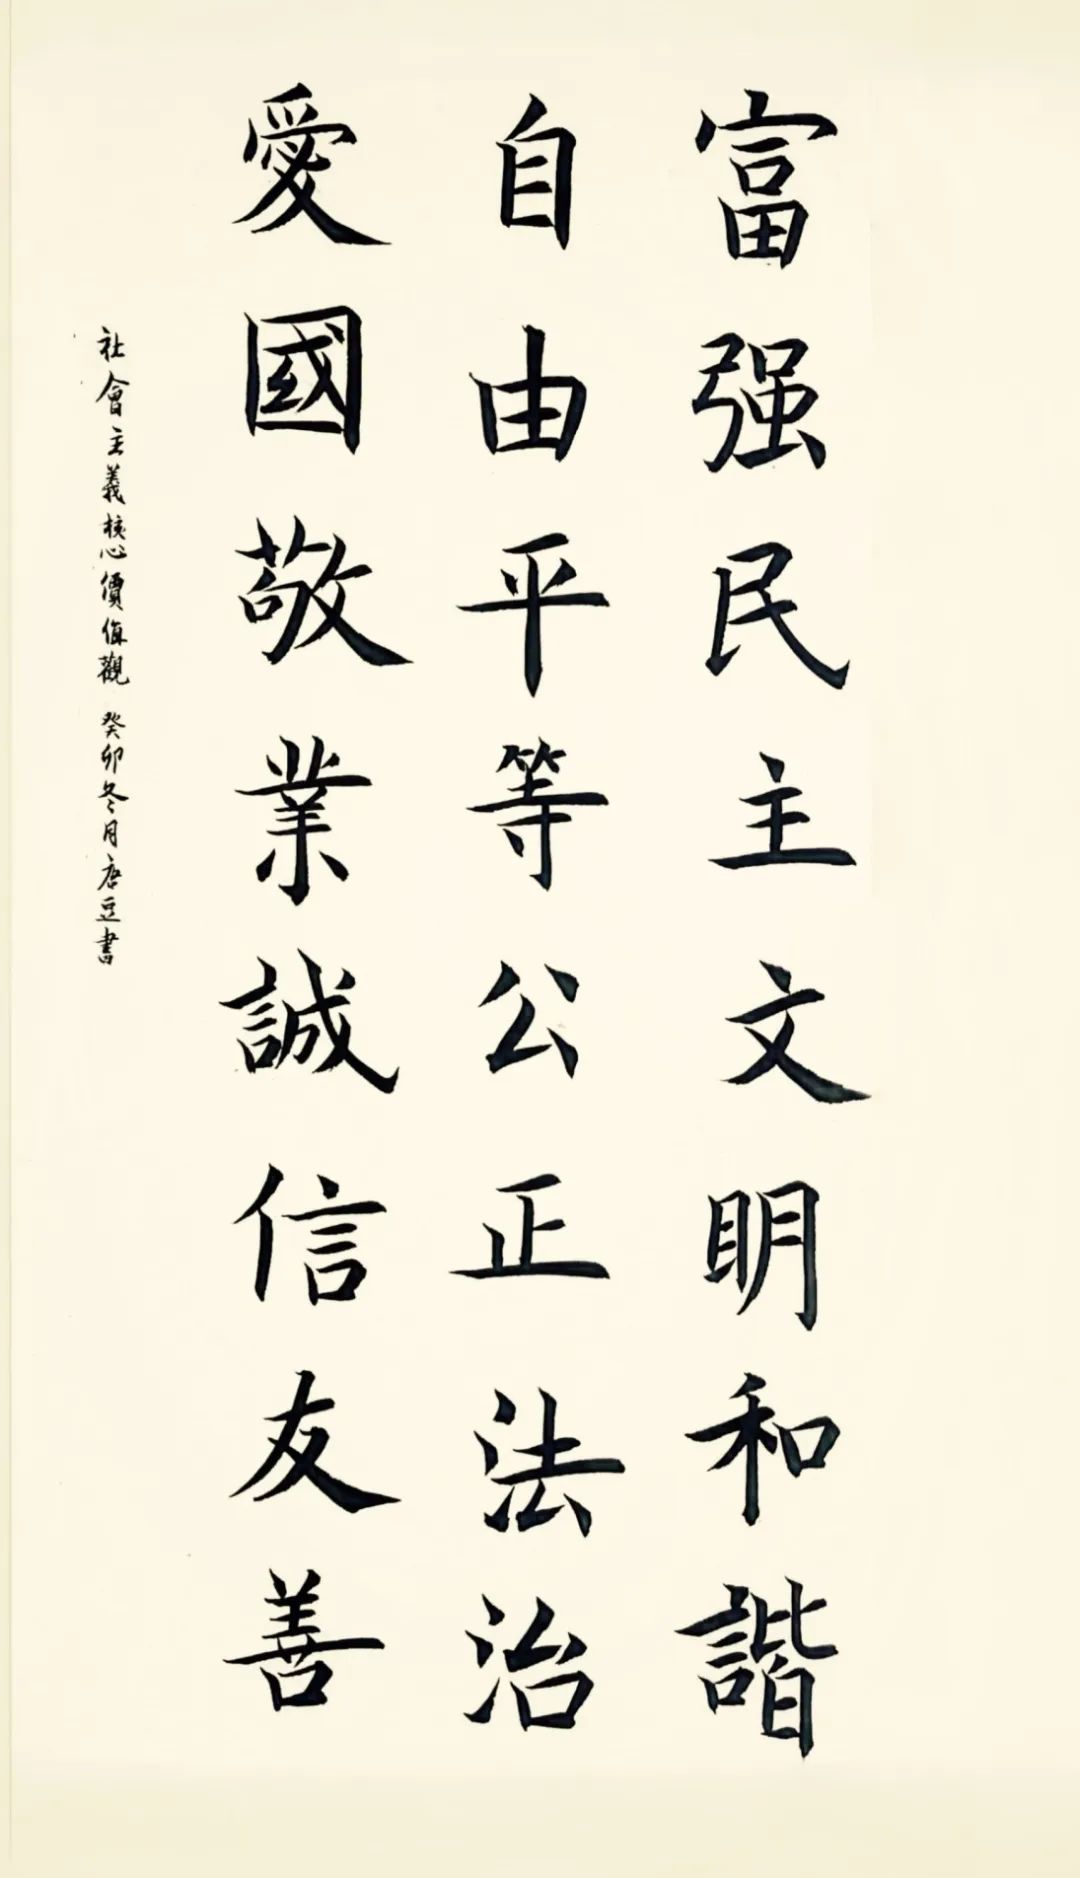 富强民主文明和諧
自由平等公正法治
愛國敬業誠信友善
社會主義核心價值觀 癸卯冬月唐豆書